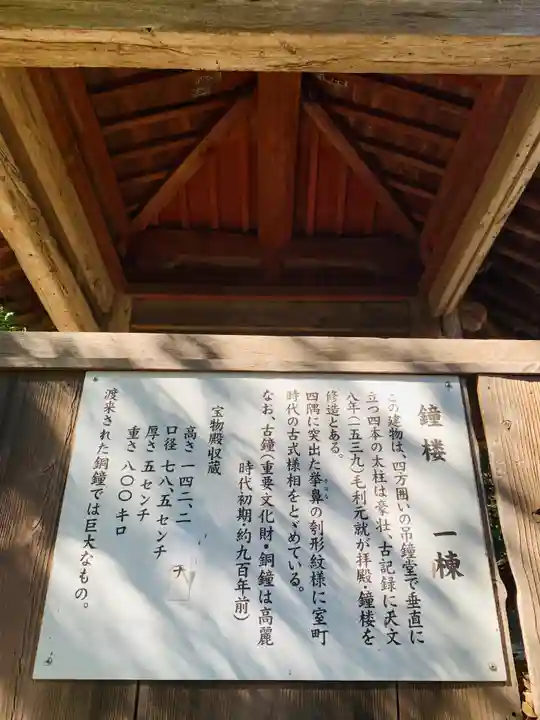 鐘楼 一棟
この建物は、四方囲いの吊鐘堂で垂直に
立つ四本の太柱は豪壮、古記録に天文
八年(一五三九)毛利元就が拝殿・鐘楼を
修造とある。
四隅に突出た拳鼻の刳形紋様に室町
時代の古式様相をとどめている。
なお、古鐘(重要文化財・銅鐘は高麗
時代初期・約九百年前)
宝物殿収蔵
高さ 一四二、二
口径 七八、五センチ
厚さ 五センチ
重さ 八〇〇キロ
渡来された銅鐘では巨大なもの。